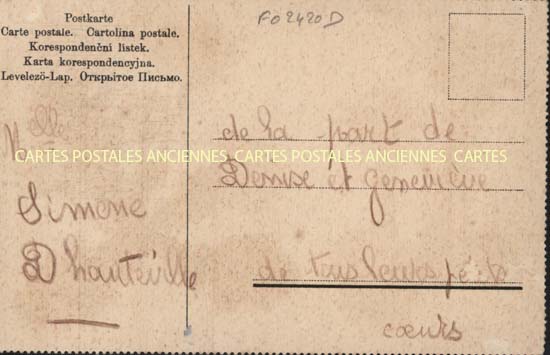 Postkarte
Carte postale. Cartolina postale.
Korespondenční lístek.
Karta korespondencyjna.
Levelező-Lap. Открытое Письмо.
FO 2420 D
Melle
Simone
Dhauteville
de la part de
Denise et Geneviève
de tous leurs petits
cœurs
CARTES POSTALES ANCIENNES CARTES POSTALES ANCIENNES CARTES